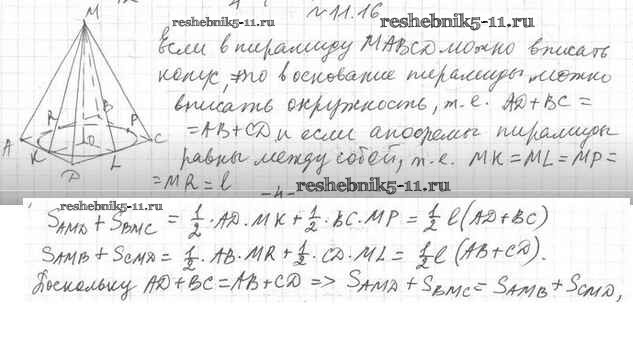 №11.16
reshebnik5-11.ru reshebnik5-11.ru
M
Если в пирамиду MABCD можно вписать
конус, то в основание пирамиды можно
вписать окружность, т.е. AD+BC=
=AB+CD, и если апофемы пирамиды
равны между собой, т.е. MK=ML=MP=
=MR=l
R B P
A O C
K L
D
reshebnik5-11.ru
reshebnik5-11.ru
S_AMD + S_BMC = 1/2 · AD · MK + 1/2 · BC · MP = 1/2 l (AD+BC)
S_AMB + S_CMD = 1/2 · AB · MR + 1/2 · CD · ML = 1/2 l (AB+CD).
Поскольку AD+BC=AB+CD => S_AMD + S_BMC = S_AMB + S_CMD,